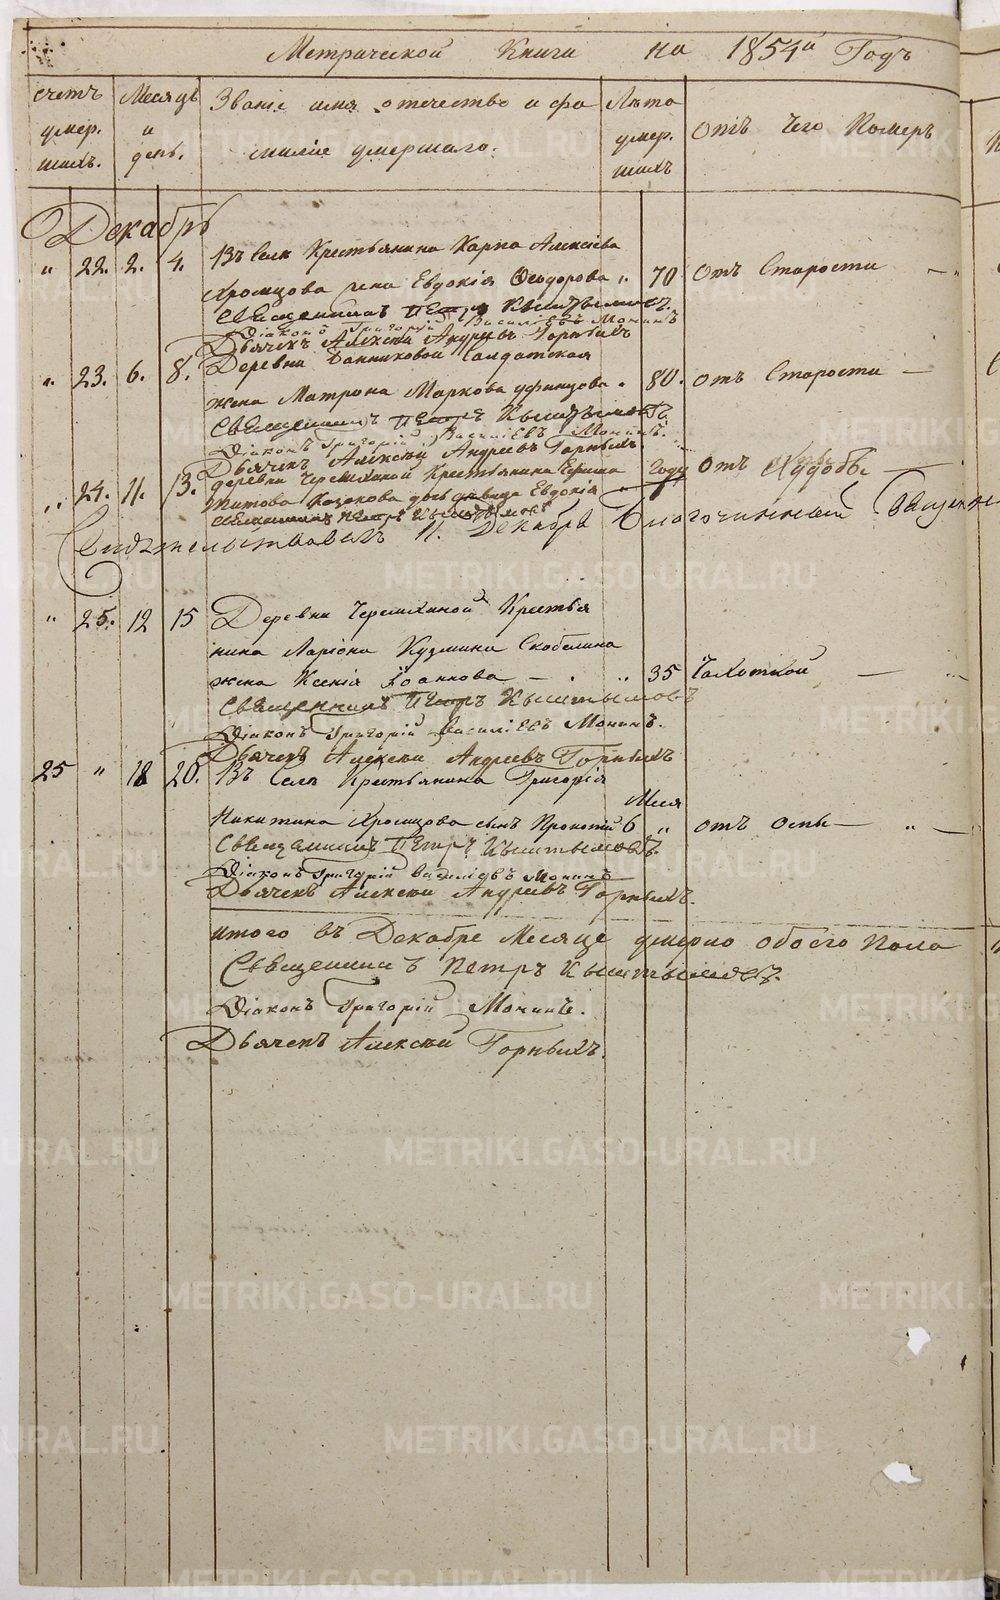 Метрической Книги на 1854й Годъ
счетъ умер. шихъ.
Месяцъ и день.
Званіе имя отечество и фа
миліе умершаго.
Лѣта умер. шихъ
отъ Чего Померъ
Декабрь
" 22. 2. 4. Въ Селѣ Крестьянина Карпа Алексіева
Хромцова жена Евдокія Ѳеодорова " 70 отъ Старости
Священникъ Петръ Кыштымовъ.
Діаконъ Григорій Василіевъ Монинъ
Дьячекъ Алексѣй Андреевъ Горныхъ
" 23. 6. 8. Деревни Банниковой Солдатская
жена Матрона Маркова 80. отъ Старости
Священникъ Петръ Кыштымовъ
Діаконъ Григорій Василіевъ Монинъ.
Дьячекъ Алексѣй Андреевъ Горныхъ
" 24. 11. 13. деревни Черемхиной Крестьянина
Титова Казакова дочь девица Евдокія Году отъ Худобы
Священникъ Петръ Кыштымовъ
Свидѣтельствовалъ 11. Декабря Благочинный
" 25. 12 15 Деревни Черемхиной Крестья
нина Ларіона Кузмина Скобелина
жена Ксенія Іоаннова 35 Чахоткой
Священникъ Петръ Кыштымовъ
Діаконъ Григорій Василіевъ Монинъ.
Дьячекъ Алексѣй Андреевъ Горныхъ
25 " 18 20. Въ Селѣ Крестьянина Григорія
Меся
Никитина Хромцова сынъ Прокопій 6 " отъ оспы
Священникъ Петръ Кыштымовъ.
Діаконъ Григорій Василіевъ Монинъ
Дьячекъ Алексѣй Андреевъ Горныхъ.
итого въ Декабрѣ Месяце умерло обоего пола
Священникъ Петръ Кыштымовъ.
Діаконъ Григорій Монинъ.
Дьячекъ Алексѣй Горныхъ.
METRIKI.GASO-URAL.RU